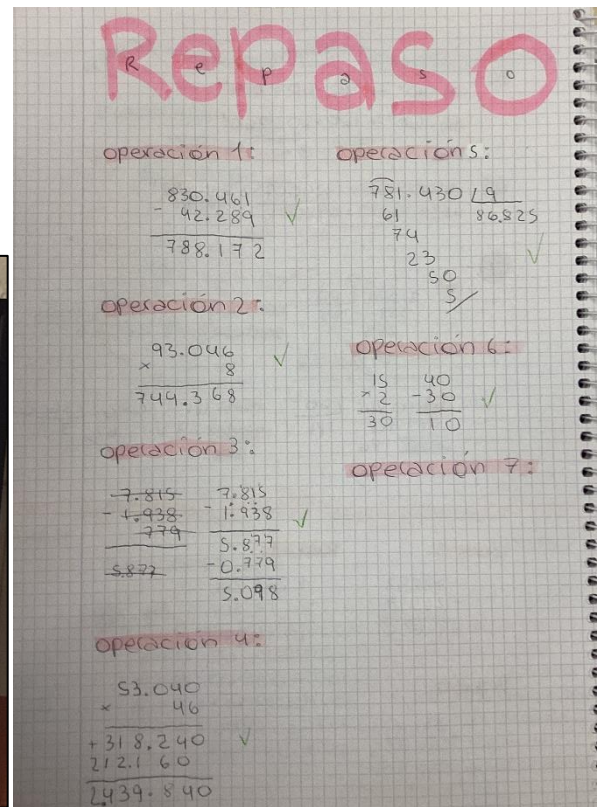 Repaso
R e p a s o
operación 1:
830.461
- 42.289 ✓
788.172
operación 2:
93.046
x 8 ✓
744.368
operación 3:
7.815 7.815
- 1.938 - 1.938 ✓
779 5.877
5.877 - 0.779
5.098
operación 4:
53.040
x 46
+318.240 ✓
212.160
2.439.840
operación 5:
781.430 9
61 86.825
74 ✓
23
50
5/
operación 6:
15 40
x 2 -30 ✓
30 10
operación 7: